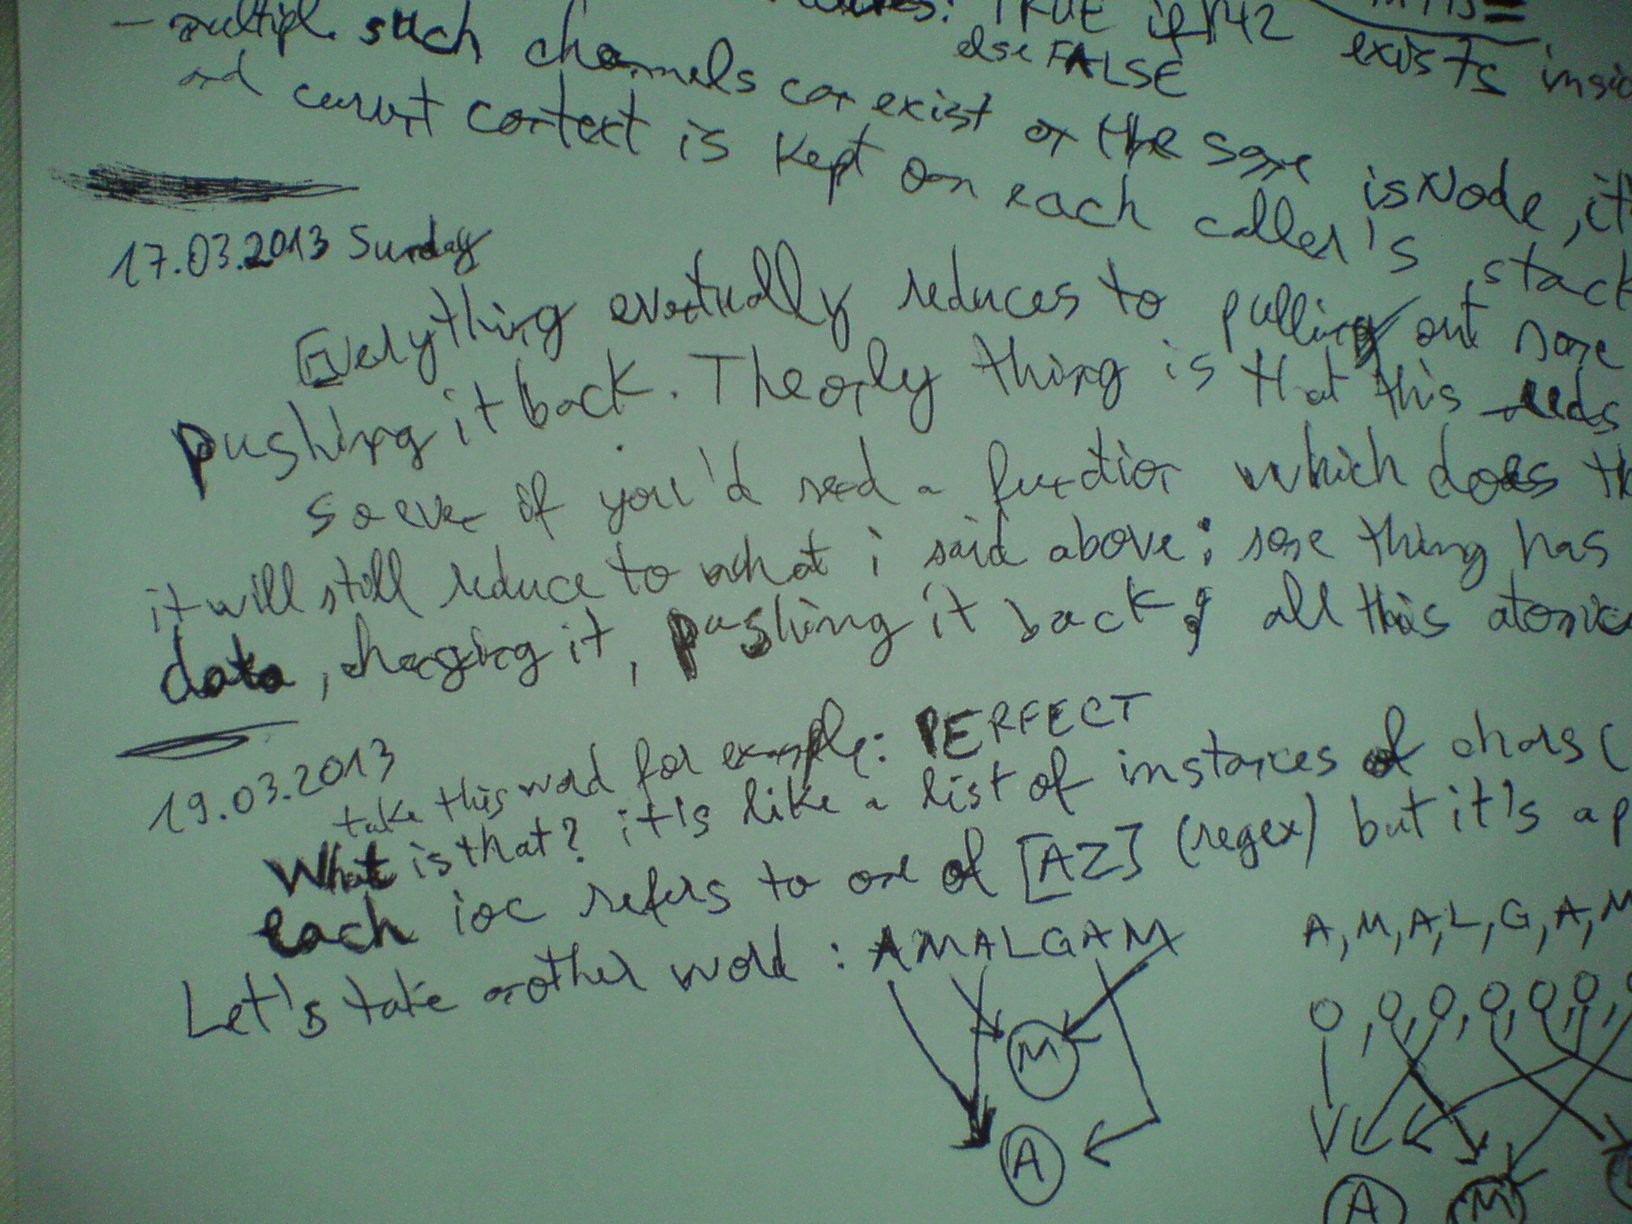 TRUE if 142 exists insi
else FALSE
- multiple such channels can exist on the same isNode, it
and current context is kept on each caller's stack
17.03.2013 Sunday
Everything eventually reduces to pulling out some
pushing it back. The only thing is that this needs
so even if you'd need a function which does th
it will still reduce to what i said above: some thing has
data, changing it, pushing it back; all this atomic
19.03.2013
take this word for example: PERFECT
What is that? it's like a list of instances of chars (
each ioc refers to one of [AZ] (regex) but it's a p
Let's take another word: AMALGAM
A, M, A, L, G, A, M
M
A
A
M